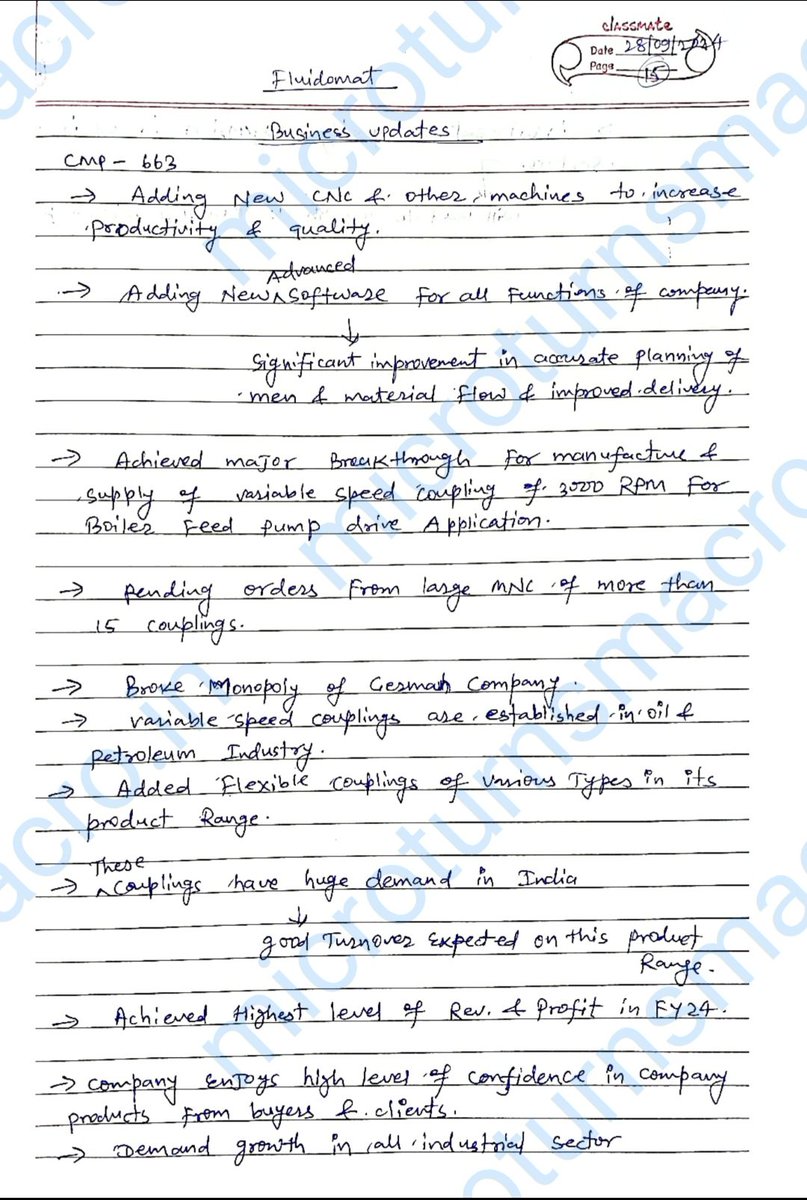 classmate
Date 28/09/2024
Page 15
Fluidomat
Business updates
CMP - 663
→ Adding New CNC & other machines to increase
productivity & quality.
Advanced
→ Adding New ^ Software for all Functions of company.
↓
Significant improvement in accurate planning of
men & material flow & improved delivery.
→ Achieved major Breakthrough for manufacture &
supply of variable speed coupling of 3000 RPM For
Boiler Feed pump drive Application.
→ pending orders from large MNC of more than
15 couplings.
→ Broke Monopoly of German Company.
→ variable speed couplings are established in oil &
petroleum Industry.
→ Added Flexible couplings of various Types in its
product Range.
These
→ ^ Couplings have huge demand in India
↓
good Turnover Expected on this product
Range.
→ Achieved Highest level of Rev. & Profit in FY24.
→ company enjoys high level of confidence in company
products from buyers & clients.
→ Demand growth in all industrial sector
microturnsmacro.in